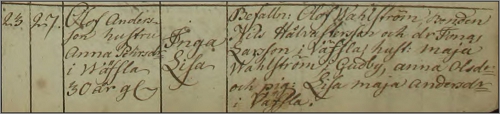 23. 27. Olof Anders-
son hustru
Anna Pehrsdr
i Wäffla
30 år gl
Inga
Lisa
Befattn: Olof Wahlström, bonden
Nils Hålvastersson och dr Jonas
Larsson i Väffla, hust: maja
Wahlström i Gudby, anna Olsdr
och pig: Lisa maja Andersdr
i Väffla.